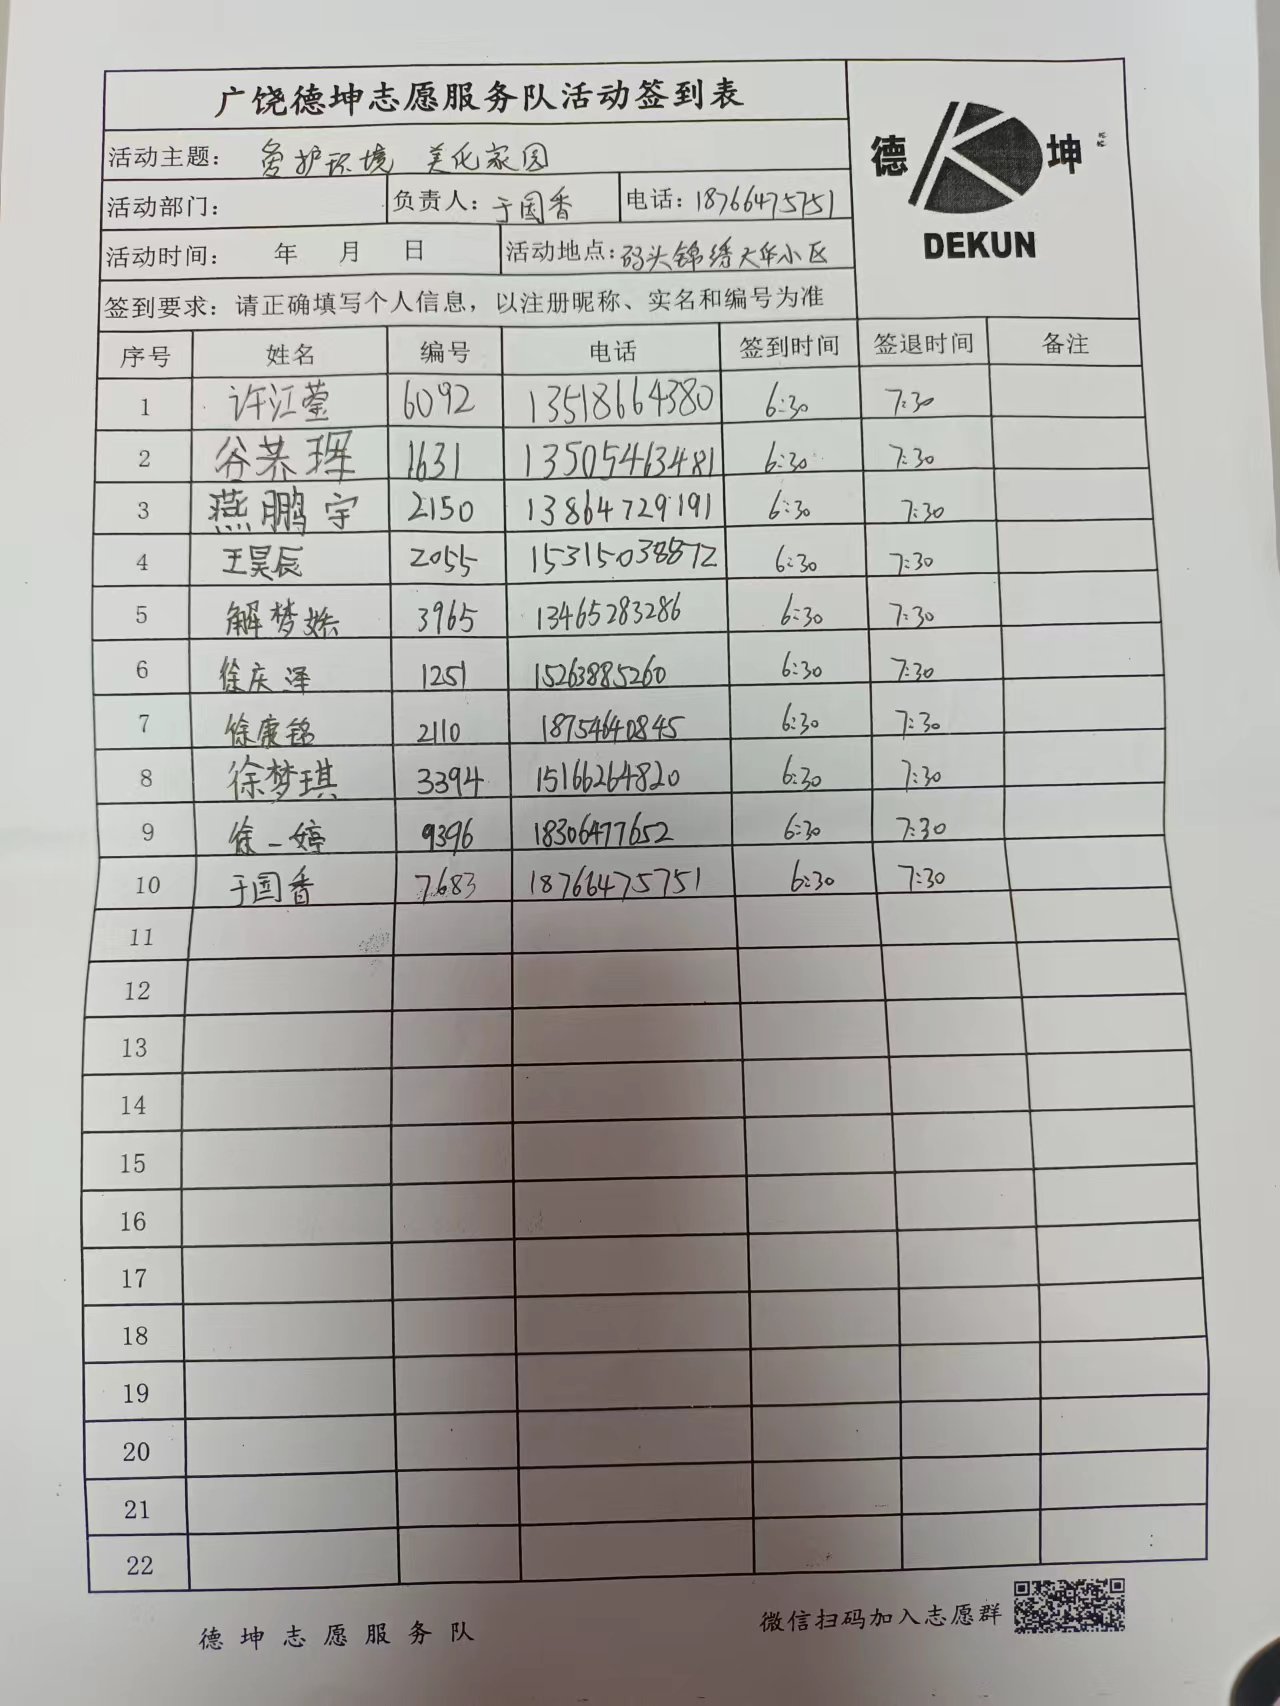 广饶德坤志愿服务队活动签到表
德 坤
DEKUN
活动主题： 爱护环境 美化家园
活动部门： 负责人：于国香 电话：18766475751
活动时间： 年 月 日 活动地点：码头锦绣大华小区
签到要求：请正确填写个人信息，以注册昵称、实名和编号为准
序号 姓名 编号 电话 签到时间 签退时间 备注
1 许江莹 6092 13518664380 6:30 7:30
2 谷荞珲 1631 13505463481 6:30 7:30
3 燕鹏宇 2150 13864729191 6:30 7:30
4 王昊辰 2055 15315038872 6:30 7:30
5 解梦 3965 13465283286 6:30 7:30
6 徐庆泽 1251 15263885260 6:30 7:30
7 徐康铭 2110 18754640845 6:30 7:30
8 徐梦琪 3394 15166264820 6:30 7:30
9 徐一婷 9396 18306477652 6:30 7:30
10 于国香 7683 18766475751 6:30 7:30
11
12
13
14
15
16
17
18
19
20
21
22
德坤志愿服务队
微信扫码加入志愿群